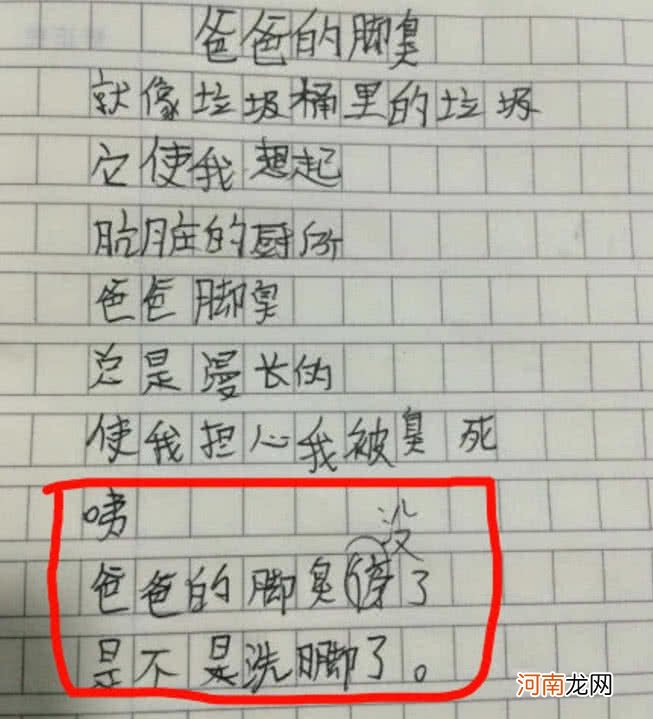 爸爸的脚臭
就像垃圾桶里的垃圾
它使我想起
肮脏的厨所
爸爸脚臭
总是漫长的
使我担心我被臭死
咦
没
爸爸的脚臭停了
是不是洗脚了。
河南龙网